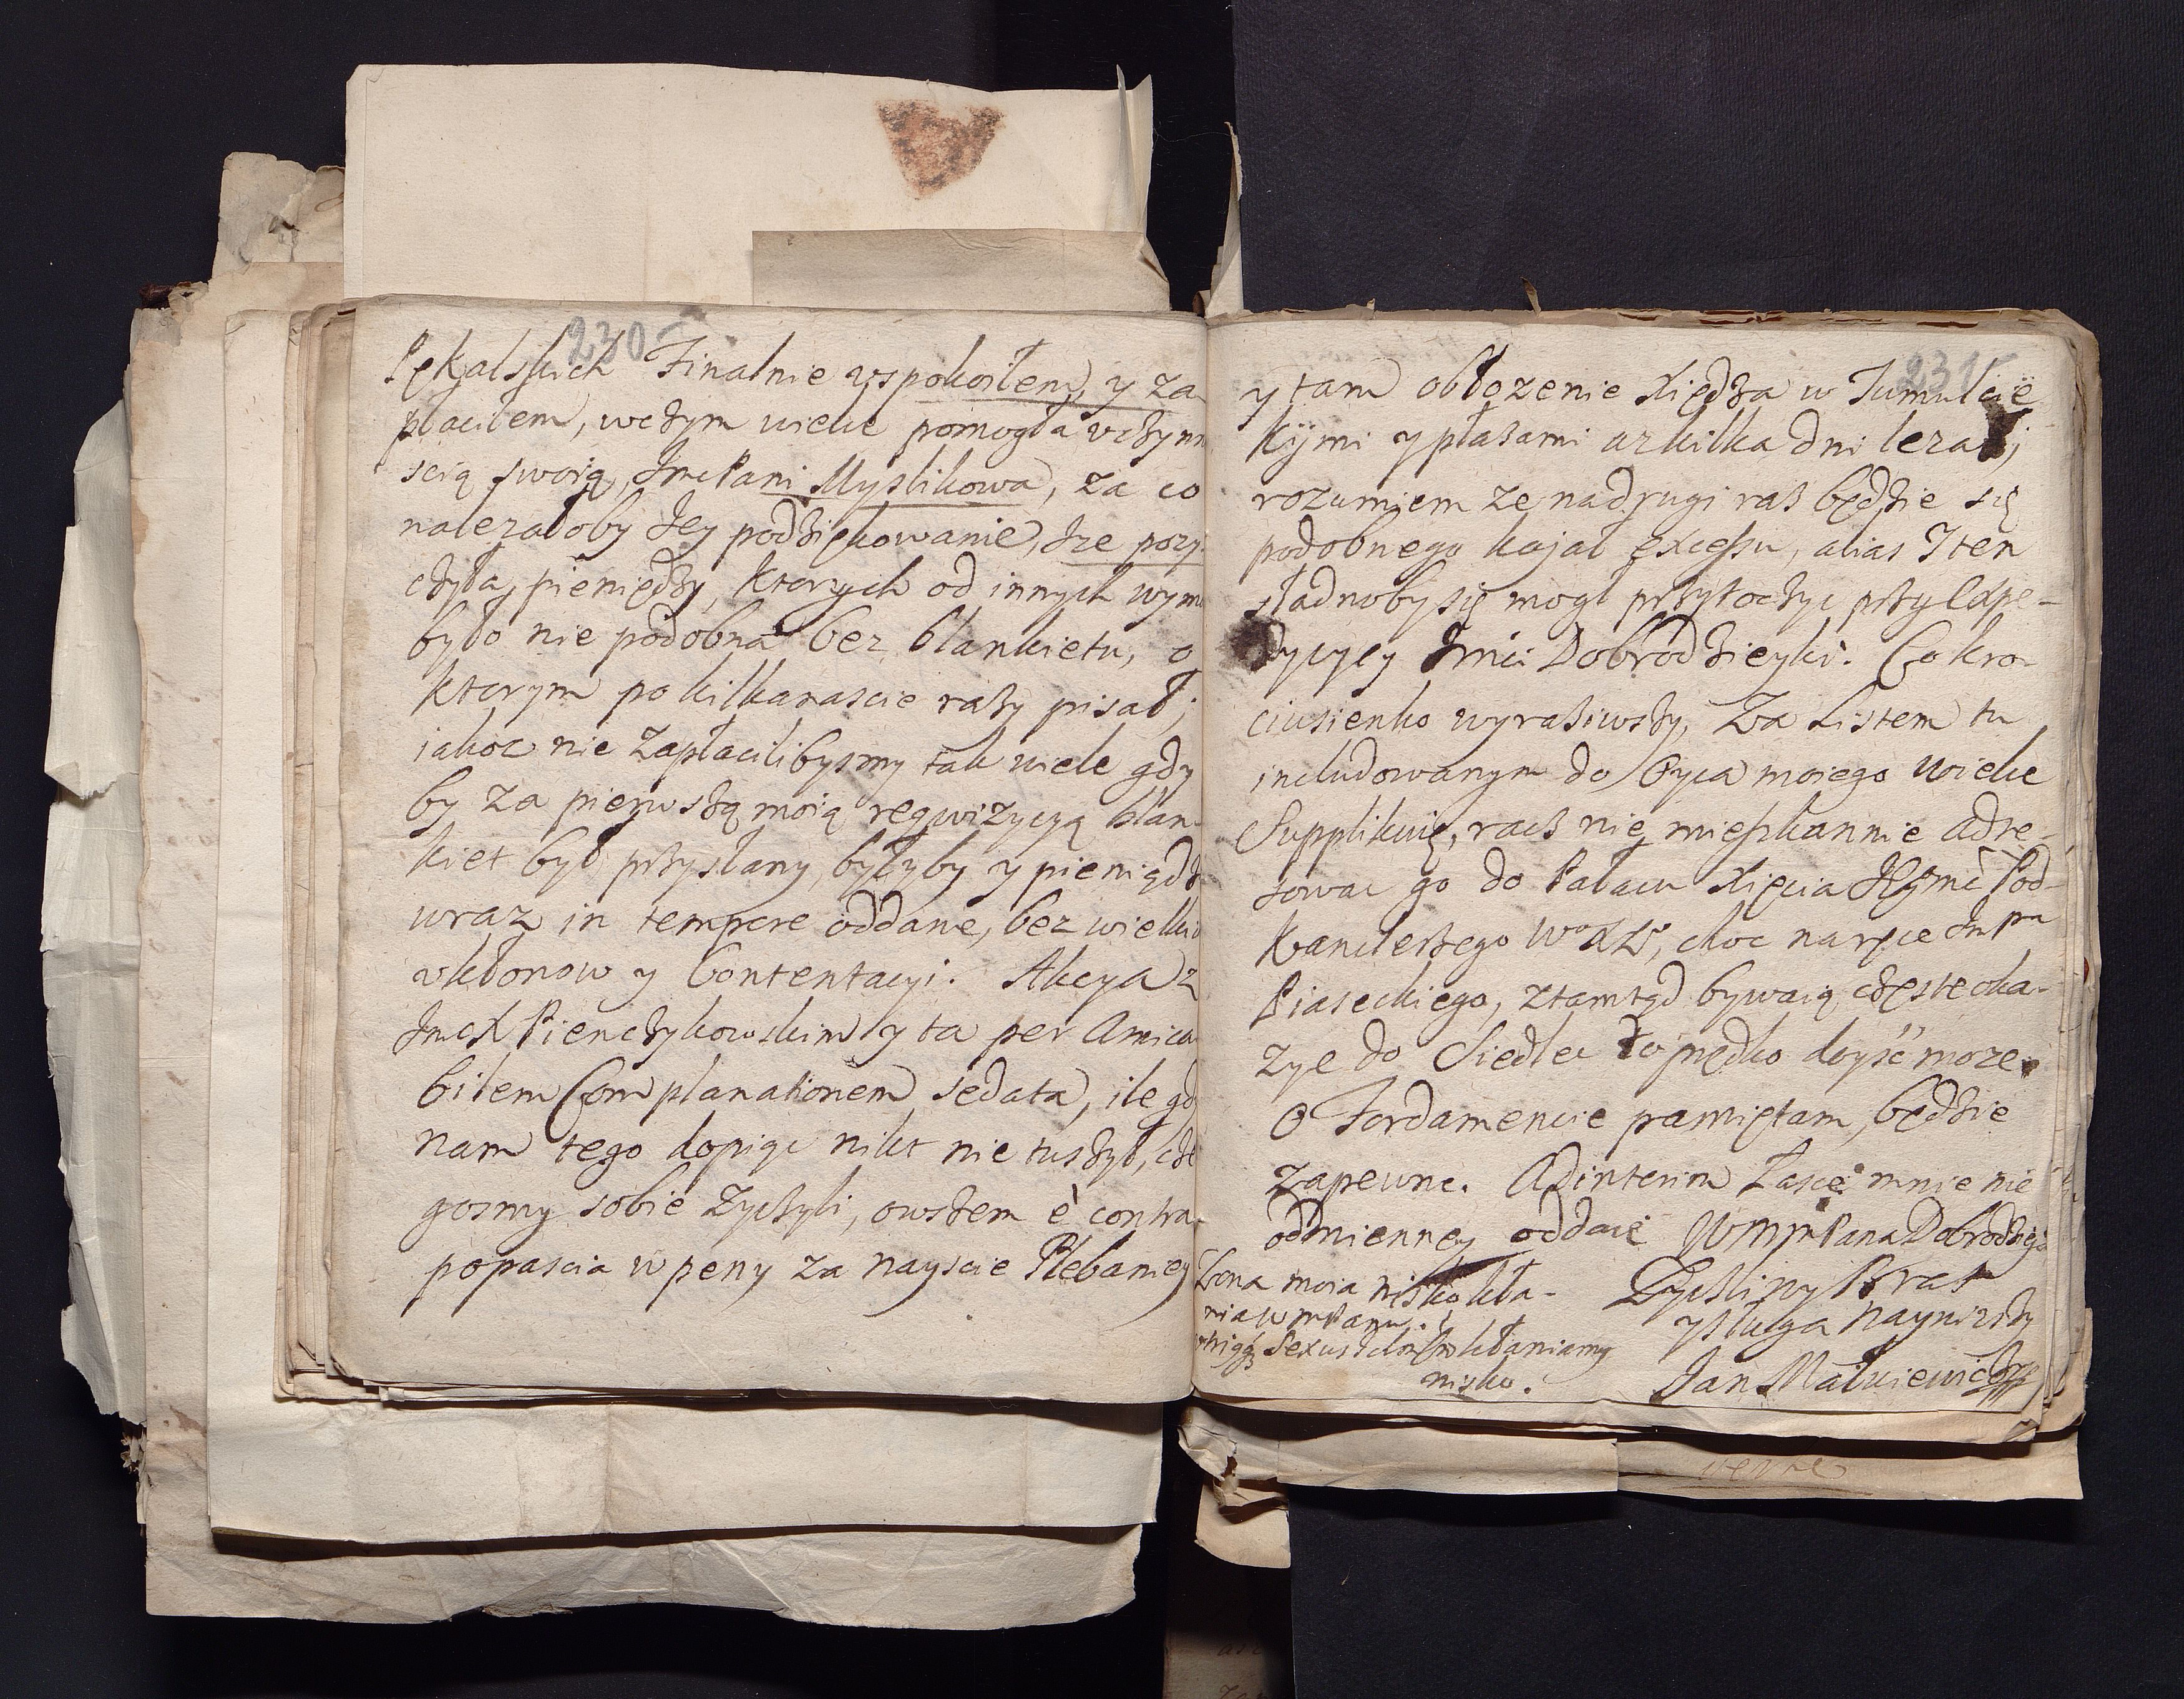 230
Pękalskich Finalnie vspokoiłem, y za
płaciłem, wczym wielce pomogła vczynn
scią swoią, JmcPani Myslikowa, za co
nalezałoby Jey podziękowanie, Jze pozy
czyła, pieniędzy, ktorych od innych wym
było nie podobna bez blankietu, o
ktorym po kilkanascie razy pisał;
iakoc nie zapłacilibysmy tak wiele gdy
by za pierwszą moią reqwizycyą blan
kiet był przysłany, byłyby y pieniądz
wraz in tempore oddane, bez wielkic
vkłonow y Contentacyi. Akcya z
JmcX Pienczykowskim y ta per Amica
bilem Complanationem sedata, ile gd
nam tego dopiąc nikt nie tuszył, cze
gosmy sobie zyczyli, owszem è contra
popascia w peny za nayscie Plebaniey
231
y tam obłozenie Xiędza w Tumulcie
Kijmi y płazami az kilka dni lezał;
rozumiem ze na drugi raz będzie się
podobnego kajał Excessu, alias Iten
sładnoby się mogł przytoczyc przy Expe-
dycyey Jmci Dobrodzieyki. Co kro-
ciusienko wyraziwszy, Za Listem tu
includowanym do Oyca moiego wielce
Supplikuię, racz nię mieszkannie adre-
sowac go do Pałacu Xięcia JEgmć Pod-
Kanclerzego WoXLo, choc na ręce Jmpa
Piaseckiego, ztamtąd bywaią częste oka-
zye do Siedlec to prędko doyść moze.
O Fordamencie pamiętam, będzie
zapewne. Adinterim Łasce mnie nie
odmienney oddaię WMMPana Dobrodzieja
Zyczliwy Brat
y sługa naynizszy
Jan Małkiewicz
Zona moia nisko kła-
nia WmPanu.
Sexus kłaniamy
nisko.